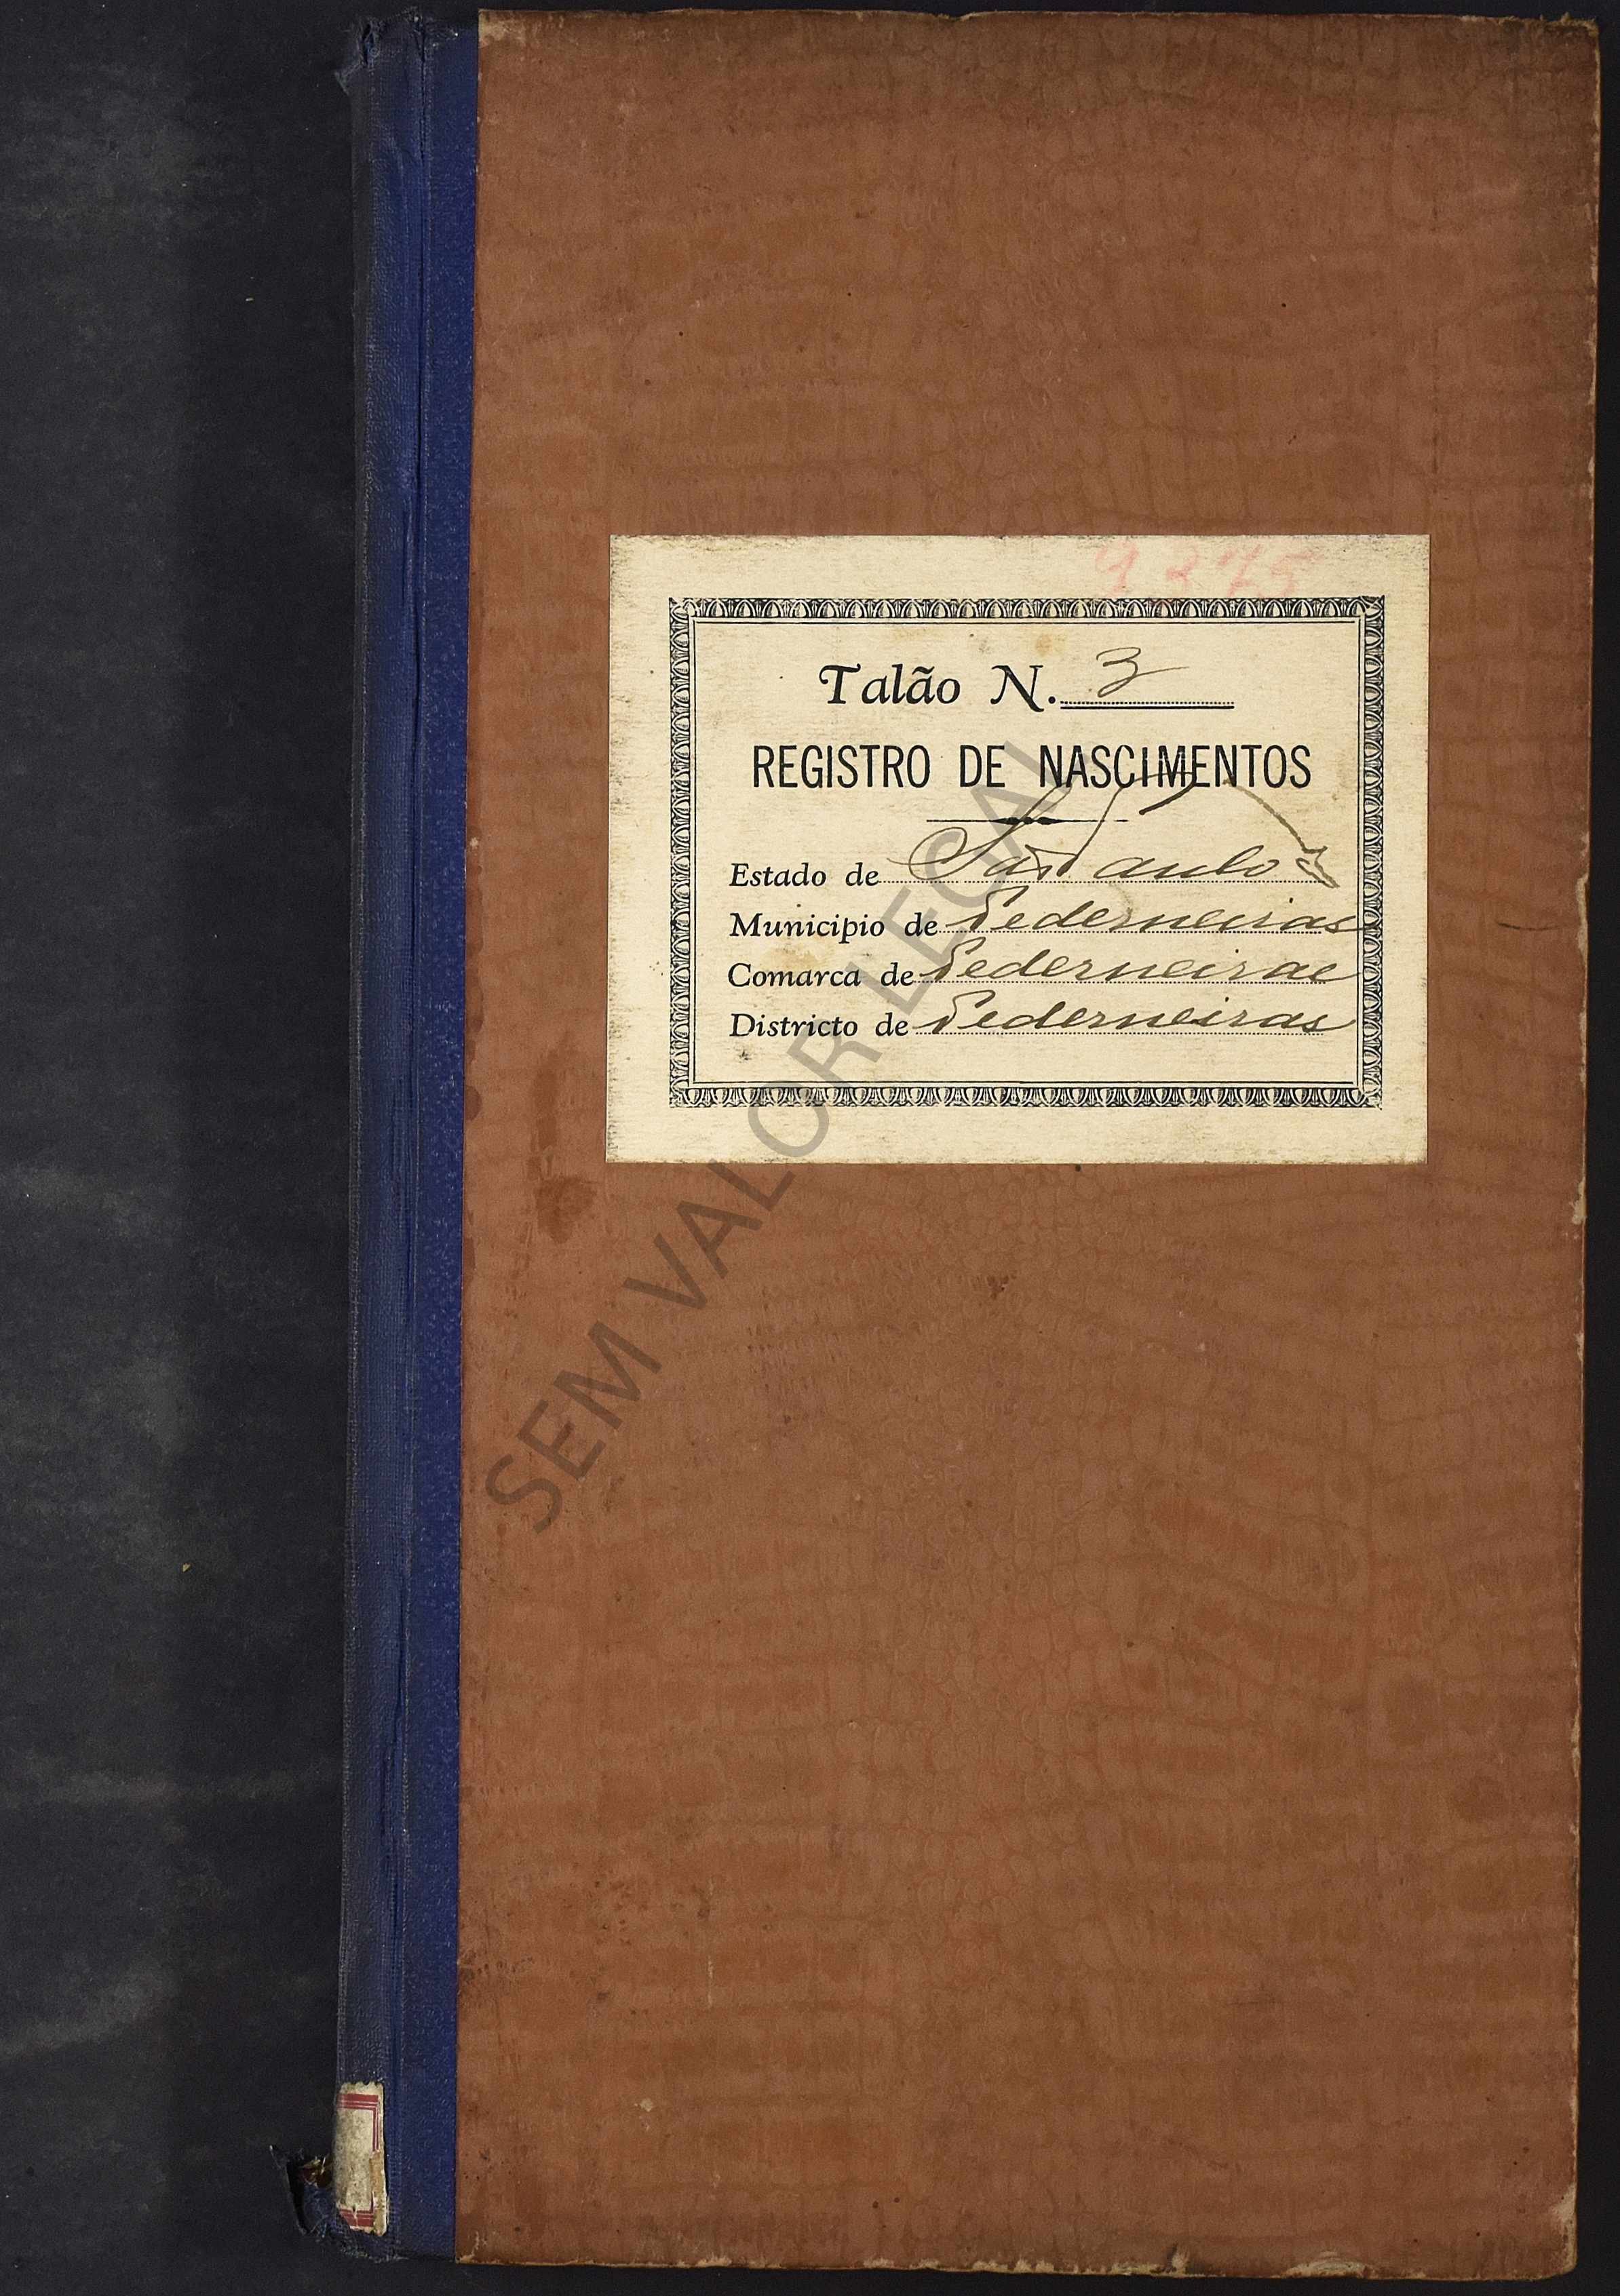 9275
Talão N. 3
REGISTRO DE NASCIMENTOS
Estado de São Paulo
Municipio de Pederneiras
Comarca de Pederneiras
Districto de Pederneiras
SEM VALOR LEGAL